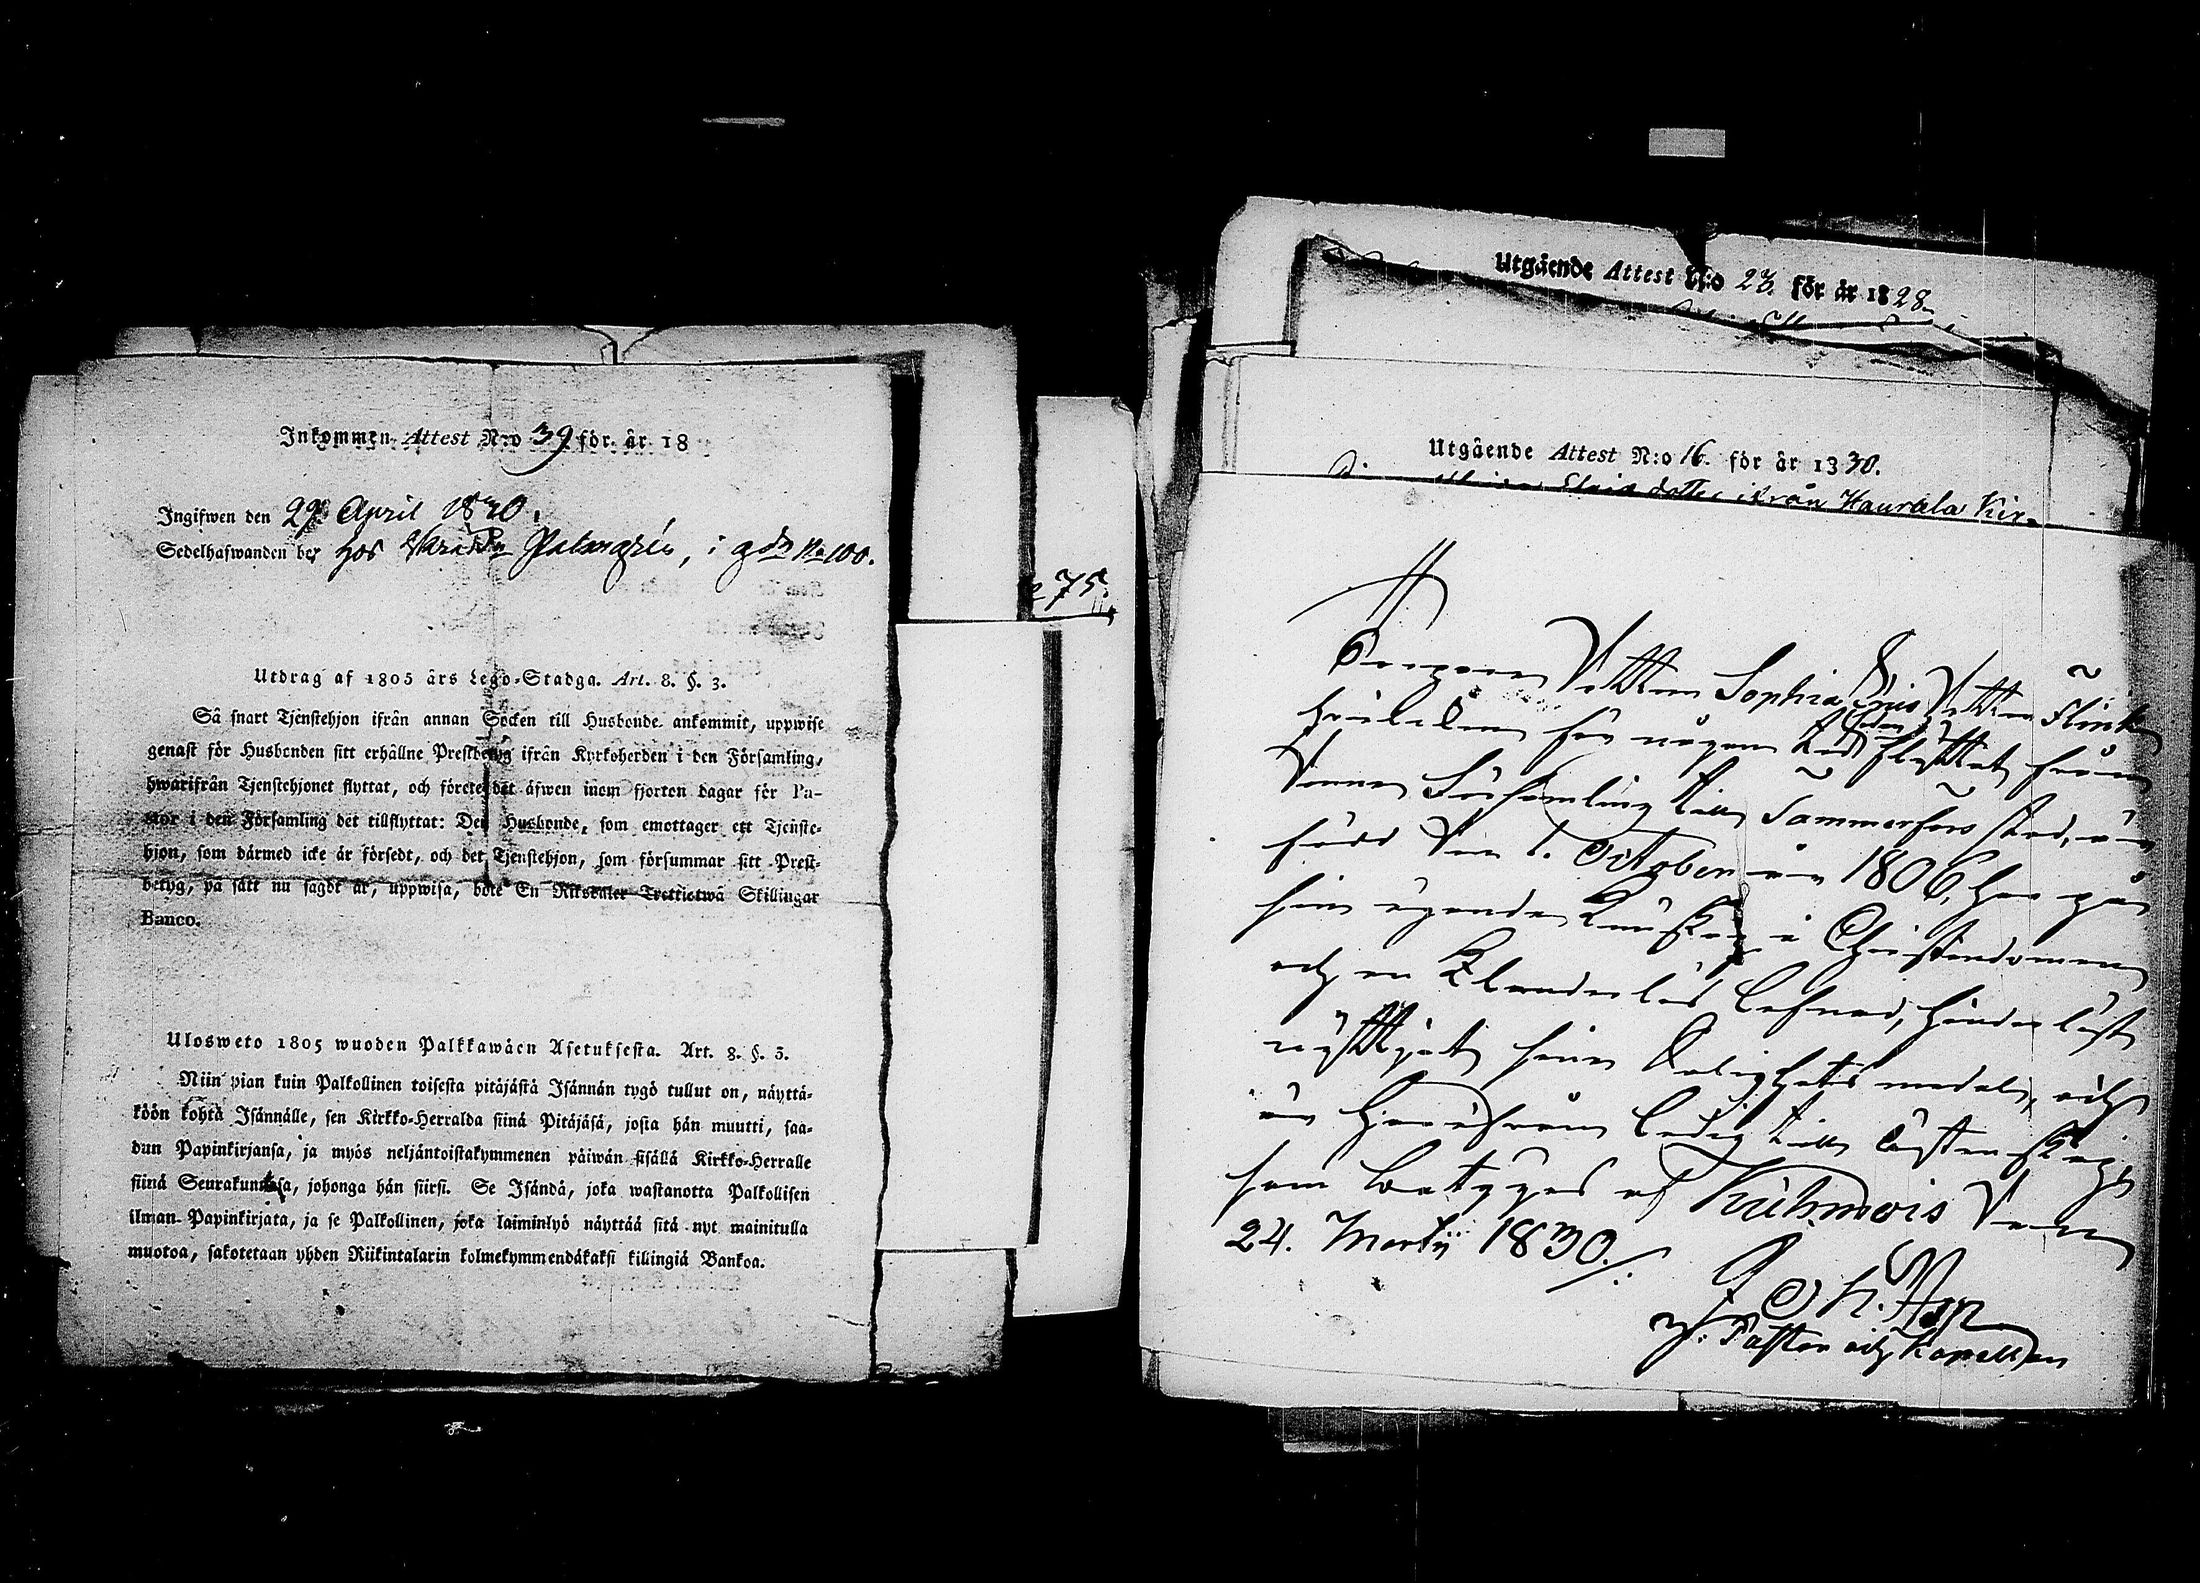 Inkommen Attest N:o 39 för år 18
Ingifwen den 29 April 1830.
Sedelhafwanden bor hos Palmgrén, i gdn No 100.
Utdrag af 1805 års Lego-Stadga. Art. 8. §. 3.
Så snart Tjenstehjon ifrån annan Socken till Husbonde ankommit, uppwise
genast för Husbonden sitt erhållne Prestbetyg ifrån Kyrkoherden i den Församling,
hwarifrån Tjenstehjonet flyttat, och förete det äfwen inom fjorton dagar för Pa-
stor i den Församling det tillflyttat: Den Husbonde, som emottager ett Tjenste-
hjon, som därmed icke är försedt, och det Tjenstehjon, som försummar sitt Prest-
betyg, på sätt nu sagdt är, uppwisa, böte En Riksdaler Trettietwå Skillingar
Banco.
Ulosweto 1805 wuoden Palkkawäen Asetuksesta. Art. 8. §. 3.
Niin pian kuin Palkollinen toisesta pitäjästä Isännän tygö tullut on, näyttä-
köön kohta Isännälle, sen Kirkko-Herralda siinä Pitäjäsä, josta hän muutti, saa-
dun Papinkirjansa, ja myös neljäntoistakymmenen päiwän sisällä Kirkko-Herralle
siinä Seurakunnasa, johonga hän siirsi. Se Isändä, joka wastanotta Palkollisen
ilman Papinkirjata, ja se Palkollinen, joka laiminlyö näyttää sitä nyt mainitulla
muotoa, sakotetaan yhden Riikintalarin kolmekymmendäkaksi killingiä Bankoa.
275.
Utgående Attest N:o 23. för år 1828
Utgående Attest N:o 16. för år 1830.
ifrån Haurala Kir-
Pigan Sophia Flink
hvilken för någon tid sedan flyttat från
denna Församling till Tammerfors stad, är
född den 1. October år 1806, har på
sin egendom Kunskap i Christendomen
och en Klanderlös lefnad, hinderlöst
nyttjat sine Salighets medel, och
är härifrån ledig till Äktenskap
som betygas af Kuhmois den
24. Martii 1830.
Asp
v. Pastor och Kapellan